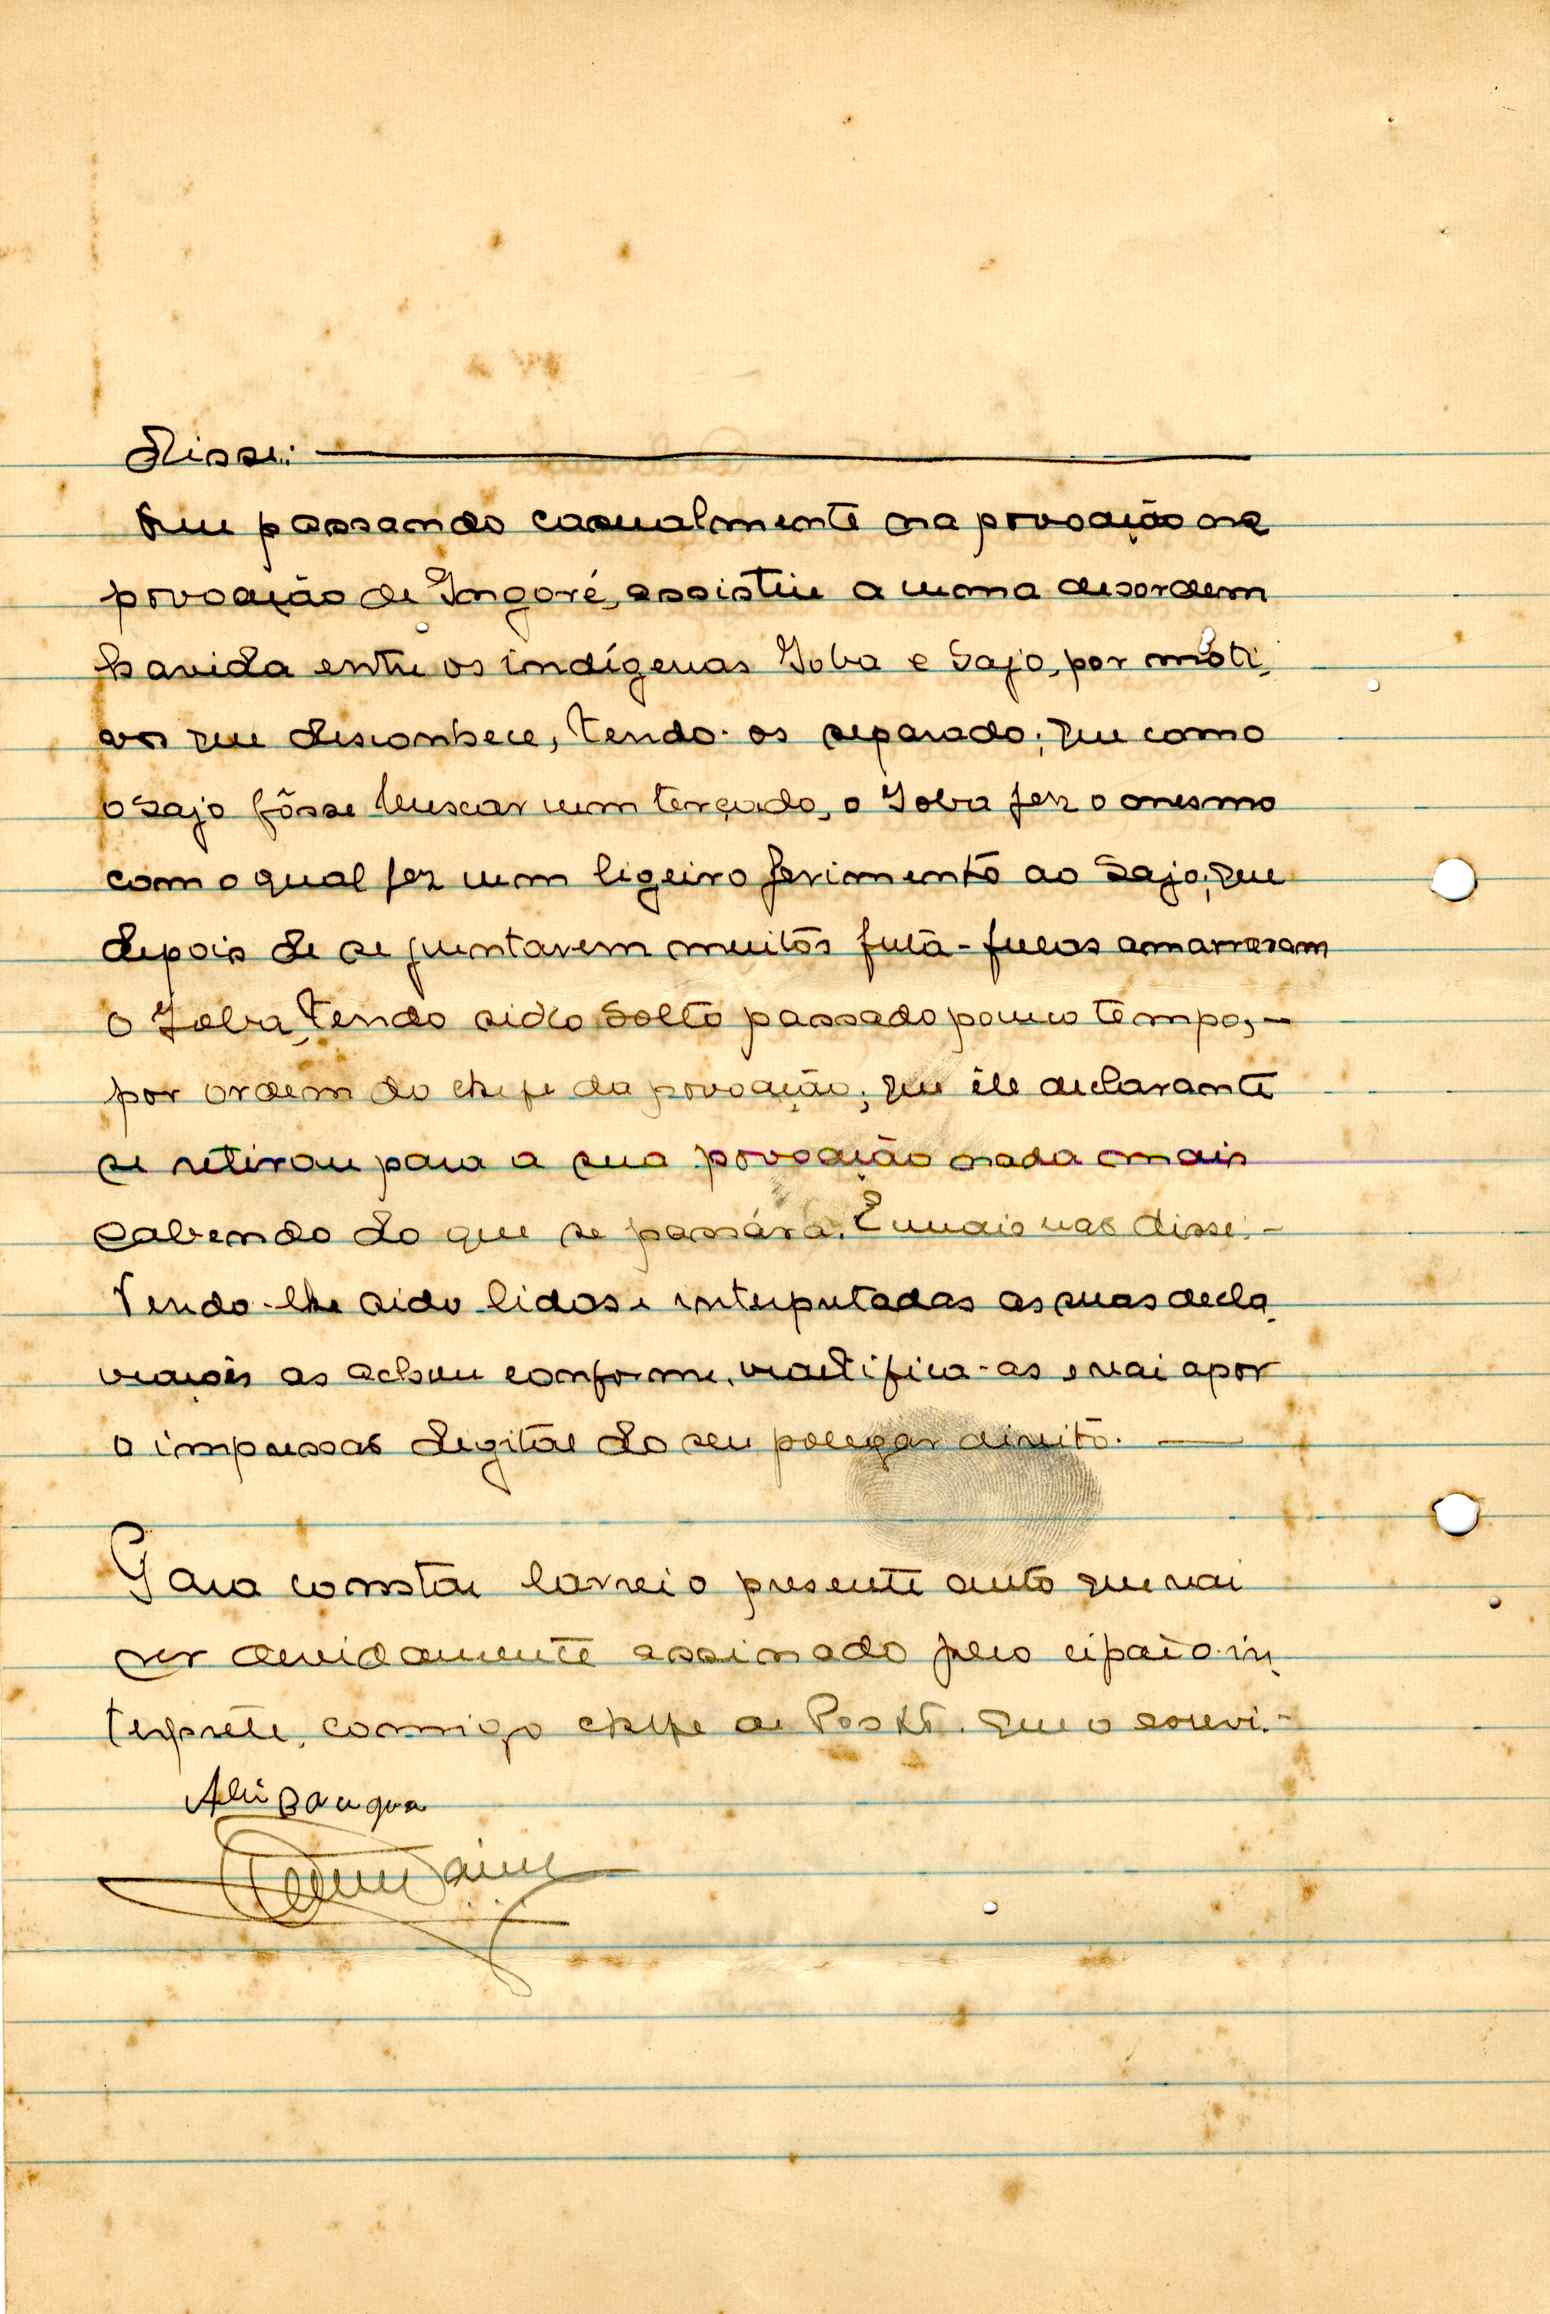 Disse:
Que passando casualmente na povoação na
povoação de Ingoré, assistiu a uma desordem
havida entre os indígenas Joba e Sajo, por moti-
vos que desconhece, tendo-os separado; que como
o Sajo fôsse buscar um terçado, o Joba fez o mesmo
com o qual fez um ligeiro ferimento ao Sajo; que
depois de se juntarem muitos futa-fulas amarraram
o Joba, tendo sido solto passado pouco tempo, -
por ordem do chefe da povoação; que êle declarante
se retirou para a sua povoação nada mais
sabendo do que se passára. E mais não disse. -
Tendo-lhe sido lidas e interpretadas as suas decla-
rações as achou conforme, ractifica-as e vai apor
a impressão degital do seu polegar direito.
Para constar lavrei o presente auto que vai
ser devidamente assinado pelo cipaio-in-
terprete, comigo chefe de Posto. que o escrevi. -